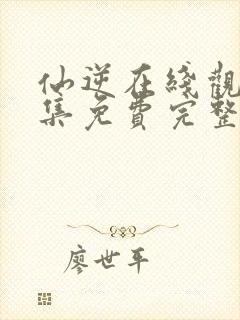 仙逆在綫觀
集免費完整
廖世平